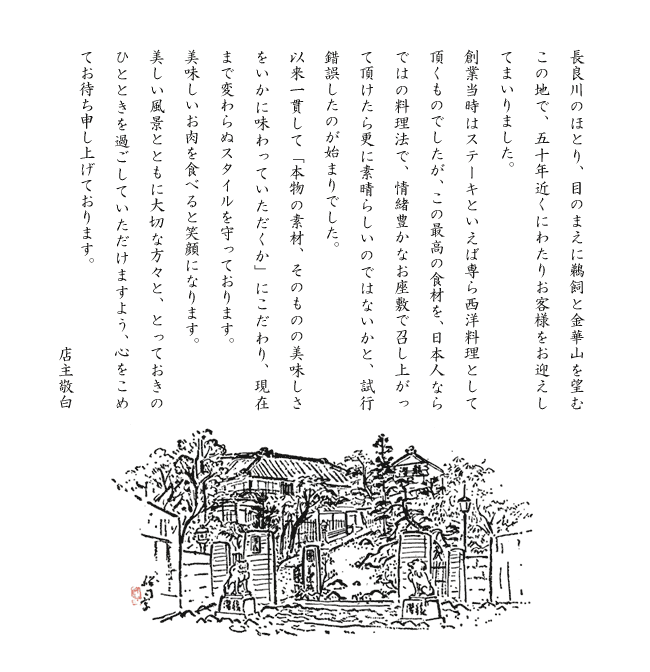 長良川のほとり、目のまえに鵜飼と金華山を望む
この地で、五十年近くにわたりお客様をお迎えし
てまいりました。
創業当時はステーキといえば専ら西洋料理として
頂くものでしたが、この最高の食材を、日本人なら
ではの料理法で、情緒豊かなお座敷で召し上がっ
て頂けたら更に素晴らしいのではないかと、試行
錯誤したのが始まりでした。
以来一貫して「本物の素材、そのものの美味しさ
をいかに味わっていただくか」にこだわり、現在
まで変わらぬスタイルを守っております。
美味しいお肉を食べると笑顔になります。
美しい風景とともに大切な方々と、とっておきの
ひとときを過ごしていただけますよう、心をこめ
てお待ち申し上げております。
店主敬白